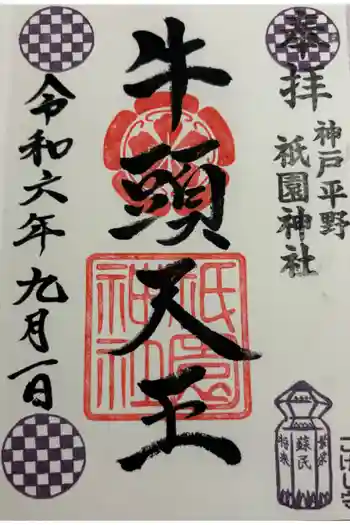 奉拝
神戸平野
祇園神社
牛頭天王
祇園
神社
令和六年九月一日
蘇民
将来